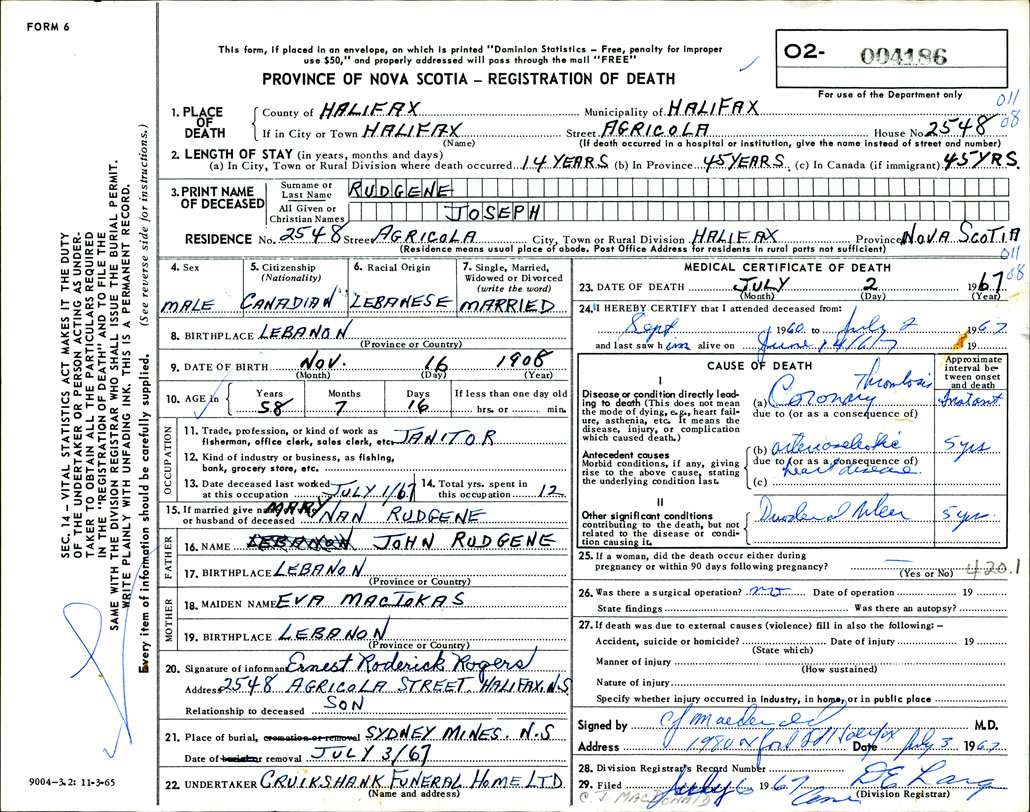 FORM 6
This form, if placed in an envelope, on which is printed "Dominion Statistics – Free, penalty for improper
use $50," and properly addressed will pass through the mail "FREE"
PROVINCE OF NOVA SCOTIA – REGISTRATION OF DEATH
02- 004186
For use of the Department only
011
08
1. PLACE OF DEATH
County of HALIFAX Municipality of HALIFAX
If in City or Town HALIFAX Street AGRICOLA House No. 2548
(Name) (If death occurred in a hospital or institution, give the name instead of street and number)
2. LENGTH OF STAY (in years, months and days)
(a) In City, Town or Rural Division where death occurred 14 YEARS (b) In Province 45 YEARS (c) In Canada (if immigrant) 45 YRS.
3. PRINT NAME OF DECEASED
Surname or Last Name RUDGENE
All Given or Christian Names JOSEPH
RESIDENCE No. 2548 Street AGRICOLA City, Town or Rural Division HALIFAX Province NOVA SCOTIA
(Residence means usual place of abode. Post Office Address for residents in rural parts not sufficient)
011
08
4. Sex MALE
5. Citizenship (Nationality) CANADIAN
6. Racial Origin LEBANESE
7. Single, Married, Widowed or Divorced (write the word) MARRIED
8. BIRTHPLACE LEBANON
(Province or Country)
9. DATE OF BIRTH NOV. 16 1908
(Month) (Day) (Year)
10. AGE in Years 58 Months 7 Days 16 If less than one day old hrs. or min.
OCCUPATION
11. Trade, profession, or kind of work as
fisherman, office clerk, sales clerk, etc. JANITOR
12. Kind of industry or business, as fishing,
bank, grocery store, etc.
13. Date deceased last worked
at this occupation JULY 1/67
14. Total yrs. spent in
this occupation 12
15. If married give name of wife
or husband of deceased MARY NAN RUDGENE
FATHER
16. NAME LEBANON JOHN RUDGENE
17. BIRTHPLACE LEBANON
(Province or Country)
MOTHER
18. MAIDEN NAME EVA MACTOKAS
19. BIRTHPLACE LEBANON
(Province or Country)
20. Signature of informant Ernest Roderick Rogers
Address 2548 AGRICOLA STREET. HALIFAX. N.S
Relationship to deceased SON
21. Place of burial, cremation or removal SYDNEY MINES. N.S
Date of burial or removal JULY 3/67
22. UNDERTAKER CRUIKSHANK FUNERAL HOME LTD.
(Name and address)
MEDICAL CERTIFICATE OF DEATH
23. DATE OF DEATH JULY 2 1967
(Month) (Day) (Year)
24. I HEREBY CERTIFY that I attended deceased from:
Sept 1960 to July 2 1967
and last saw him alive on June 14/67 19
CAUSE OF DEATH
Approximate interval between onset and death
I
Disease or condition directly leading to death (This does not mean
the mode of dying, e.g., heart failure, asthenia, etc. It means the
disease, injury, or complication
which caused death.)
(a) Coronary Thrombosis Instant
due to (or as a consequence of)
Antecedent causes
Morbid conditions, if any, giving
rise to the above cause, stating
the underlying condition last.
(b) arteriosclerotic 5 yrs
due to (or as a consequence of)
heart disease
(c)
II
Other significant conditions
contributing to the death, but not
related to the disease or condition causing it.
Duodenal Ulcer 5 yrs.
25. If a woman, did the death occur either during
pregnancy or within 90 days following pregnancy?
(Yes or No)
420.1
26. Was there a surgical operation? no Date of operation 19
State findings Was there an autopsy?
27. If death was due to external causes (violence) fill in also the following: –
Accident, suicide or homicide? Date of injury 19
(State which)
Manner of injury
(How sustained)
Nature of injury
Specify whether injury occurred in Industry, in home, or in public place
Signed by M.D.
Address 198 Oxford St Halifax Date July 3 1967
28. Division Registrar's Record Number
29. Filed July 6 1967
(Division Registrar)
C. J. MACDONALD
SEC. 14 – VITAL STATISTICS ACT MAKES IT THE DUTY
OF THE UNDERTAKER OR PERSON ACTING AS UNDER-
TAKER TO OBTAIN ALL THE PARTICULARS REQUIRED
IN THE "REGISTRATION OF DEATH" AND TO FILE THE
SAME WITH THE DIVISION REGISTRAR WHO SHALL ISSUE THE BURIAL PERMIT.
WRITE PLAINLY WITH UNFADING INK. THIS IS A PERMANENT RECORD.
Every item of information should be carefully supplied. (See reverse side for instructions.)
9004-3.2: 11-3-65